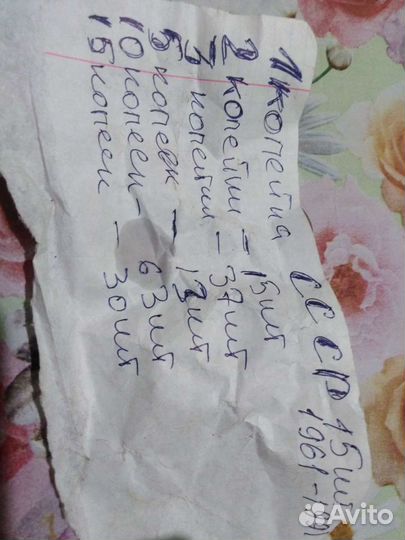 1 копейка СССР 15шт
1961-1991
2 копейки – 15шт
3 копейки – 37шт
5 копеек – 13шт
10 копеек – 63шт
15 копеек – 30шт
Avito